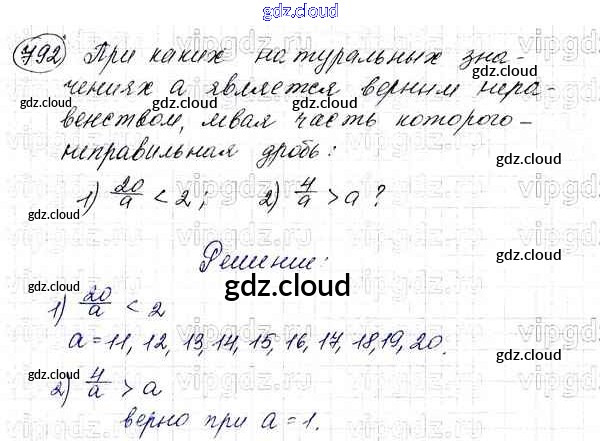 gdz.cloud
792) При каких натуральных зна-
чениях a является верным нера-
gdz.cloud gdz.cloud
венством, левая часть которого -
gdz.cloud gdz.cloud
неправильная дробь:
gdz.cloud
1) 20/a < 2; 2) 4/a > a?
gdz.cloud gdz.cloud
Решение:
1) 20/a < 2
gdz.cloud
gdz.cloud gdz.cloud
a = 11, 12, 13, 14, 15, 16, 17, 18, 19, 20.
2) 4/a > a
gdz.cloud gdz.cloud
верно при a = 1.
gdz.cloud